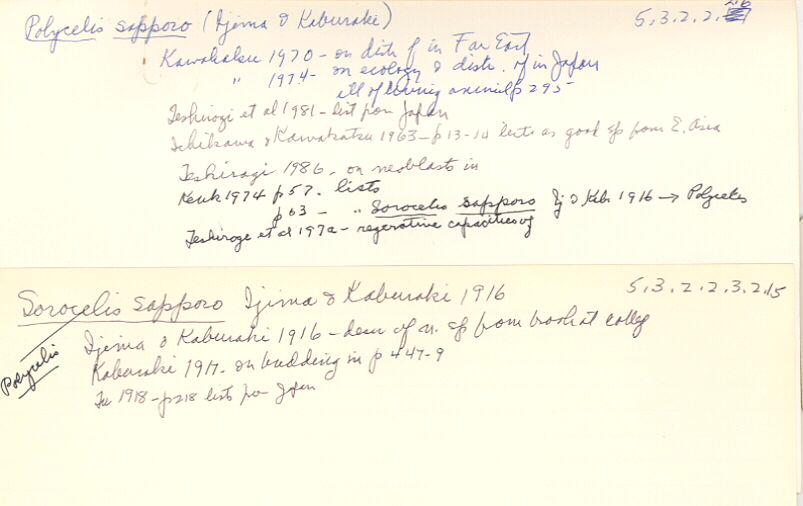 Polycelis sapporo (Ijima & Kaburaki) 5,3.2.2.
Kawakatsu 1970 - on distr of in Far East
" 1974 - on ecology & distr. of in Japan
ill of living animal p 295
Teshirogi et al 1981 - list from Japan
Ichikawa & Kawakatsu 1963 - p 13-14 lists as good sp from E. Asia
Teshirogi 1986 - on neoblasts in
Kenk 1974 p 57. lists
p 63 - " Sorocelis sapporo Ij & Kab. 1916 → Polycelis
Teshiroge et al 197a - regenerative capacities of
Sorocelis sapporo Ijima & Kaburaki 1916 5.3.2.2.3.2.15
Polycelis
Ijima & Kaburaki 1916 - descr of n. sp from brook at
Kaburaki 1917. on budding in p 447-9
1918 - p 218 lists from Japan